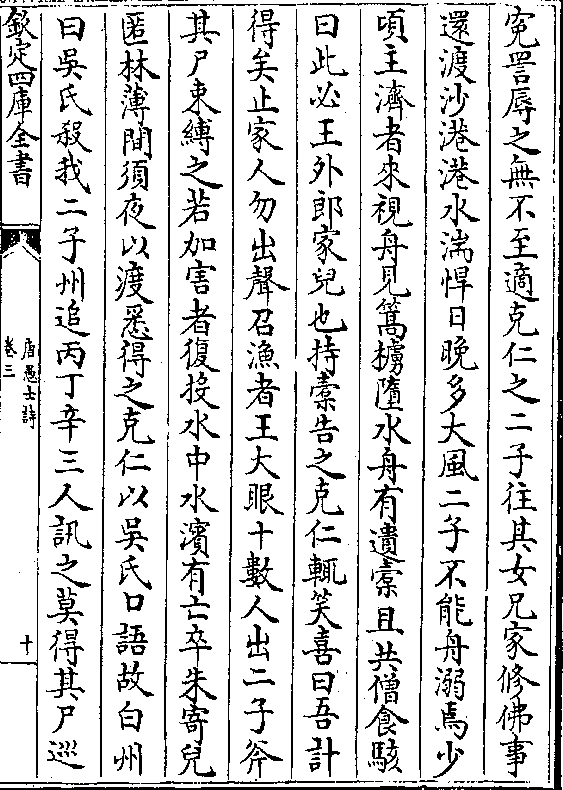 冤詈辱之無不至適克仁之二子往其女兄家修佛事
還渡沙港港水湍悍日晚多大風二子不能舟溺焉少
頃主濟者來視舟見篙櫓墮水舟有遺橐且共僧食駭
曰此必王外郎家兒也持橐告之克仁輒笑喜曰吾計
得矣止家人勿出聲召漁者王大眼十數人出二子斧
其尸束縛之若加害者復投水中水濱有亡卒朱寄兒
匿林薄間須夜以渡悉得之克仁以吳氏口語故白州
曰吳氏殺我二子州追丙丁辛三人訊之莫得其尸巡
欽定四庫全書
唐愚士詩
卷三
十